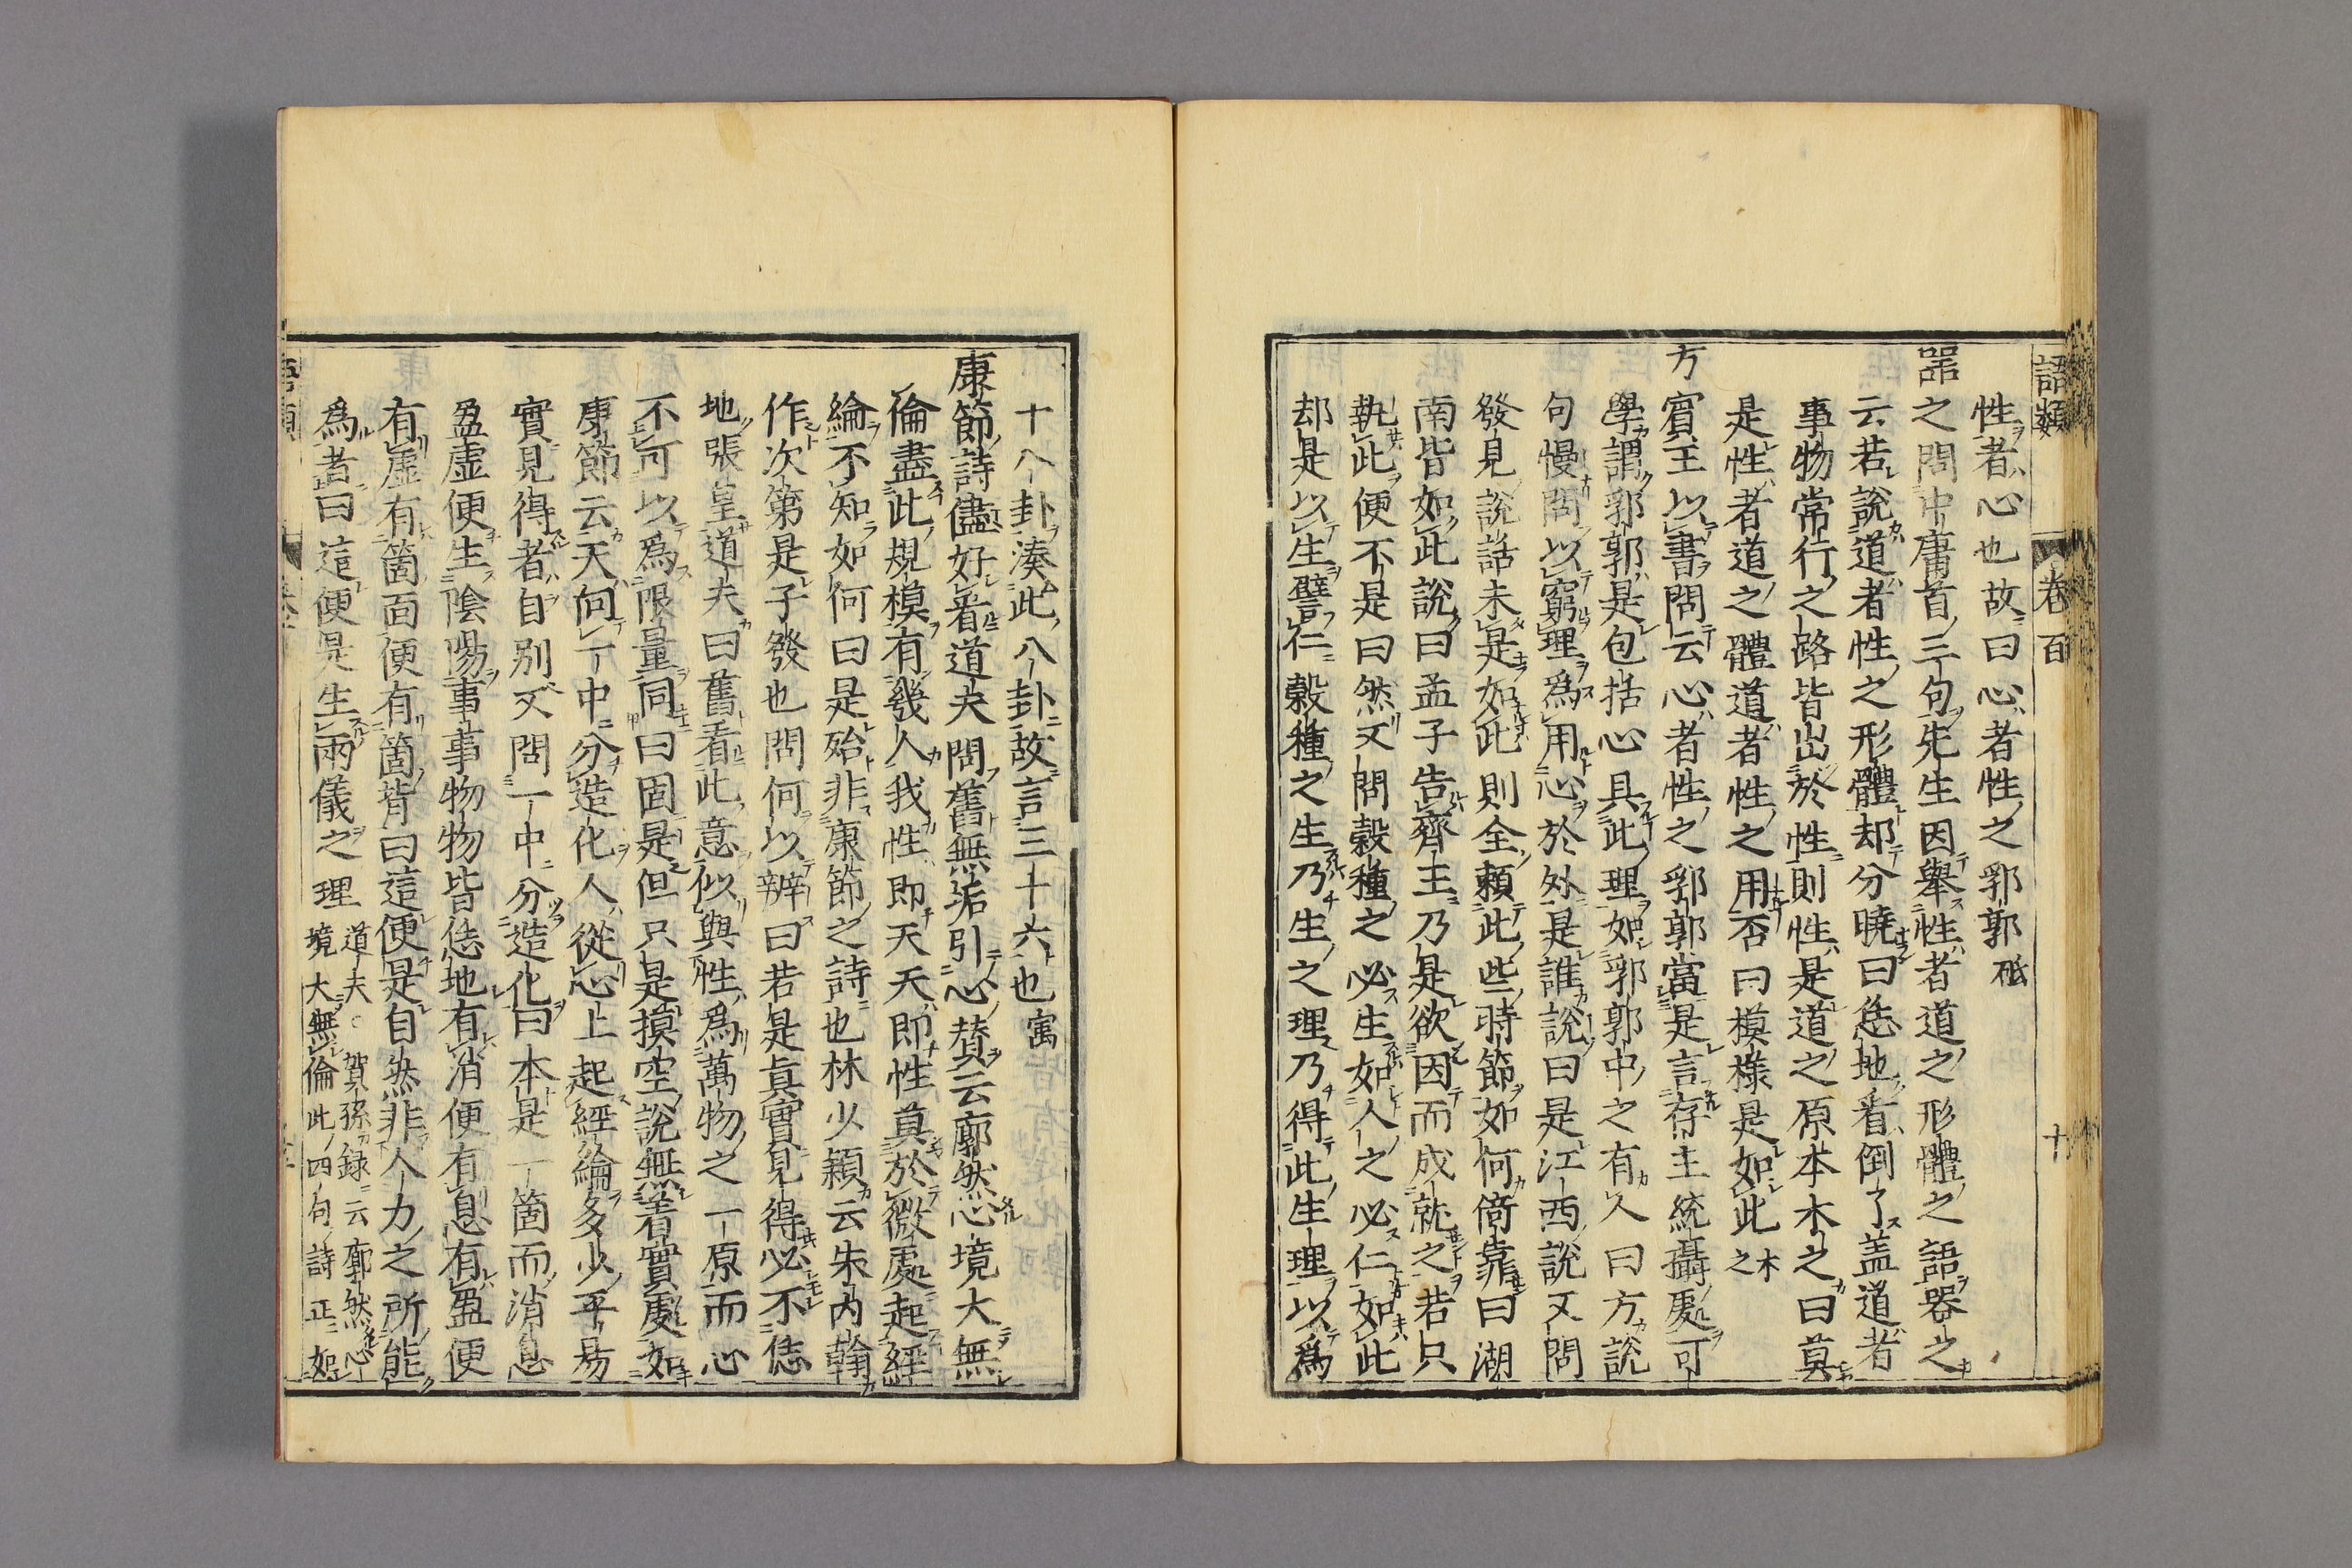 語類 卷百 十
性者心也故曰心者性之郛郭砥
器之問中庸首三句先生因舉性者道之形體之語器之
云若說道者性之形體却分曉曰恁地看倒了盖道者
事物常行之路皆出於性則性是道之原本木之曰莫
是性者道之體道者性之用否曰模樣是如此木之
方賓王以書問云心者性之郛郭當是言存主統攝處可
學謂郛郭是包括心具此理如郛郭中之有人曰方說
句慢問以窮理爲用心於外是誰說曰是江西說又問
發見說話未是如此則全賴此些時節如何倚靠曰湖
南皆如此說曰孟子告齊王乃是欲因而成就之若只
執此便不是曰然又問穀種之必生如人之必仁如此
却是以生譬仁穀種之生乃生之理乃得此生理以爲
十八卦湊此八卦故言三十六也寓
康節詩儘好看道夫問舊無垢引心贊云廓然心境大無
倫盡此規模有幾人我性即天天即性莫於微處起經
綸不知如何曰是殆非康節之詩也林少穎云朱內翰
作次第是子發也問何以辨曰若是真實見得必不恁
地張皇道夫曰舊看此意似與性爲萬物之一原而心
不可以爲限量同曰固是但只是摸空說無著實處如
康節云天向一中分造化人從心上起經綸多少平易
實見得者自別又問一中分造化曰本是一箇而消息
盈虛便生陰陽事事物物皆恁地有消便有息有盈便
有虛有箇面便有箇背曰這便是自然非人力之所能
爲者曰這便是生兩儀之理
道夫○賀孫録云廓然心
境大無倫此四句詩正如